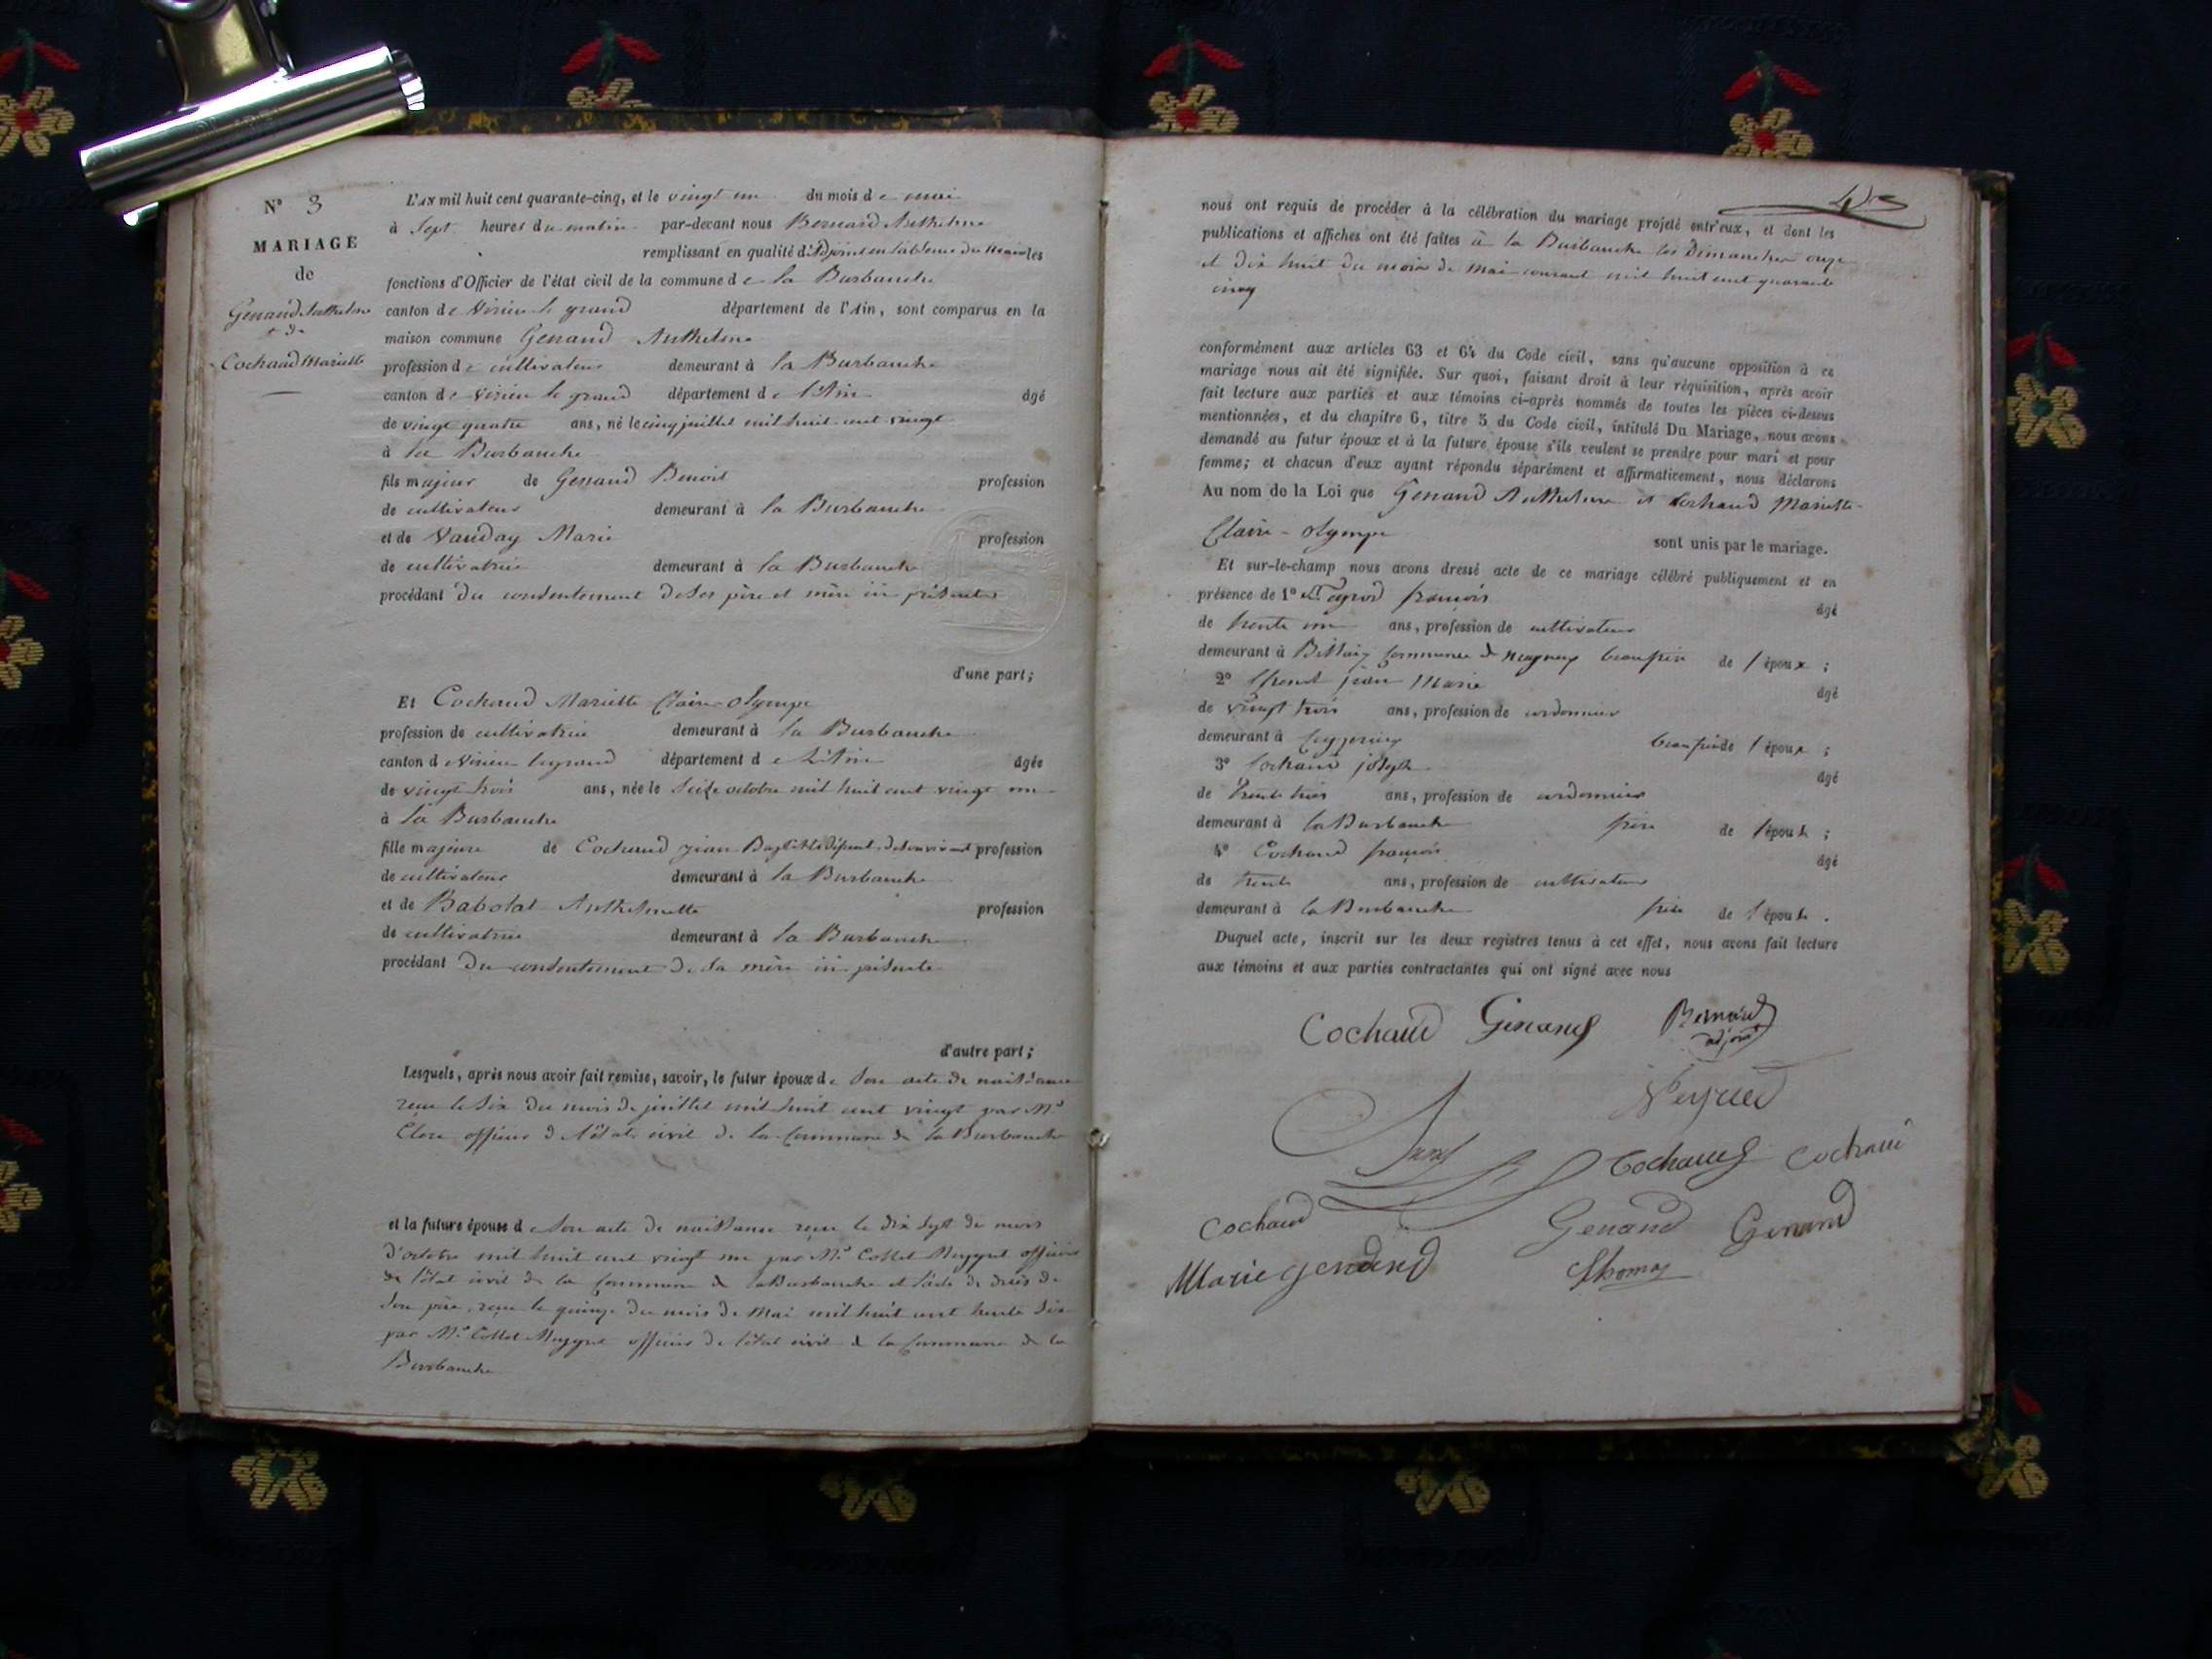 N° 3
MARIAGE
de
Genand Anthelme
et de
Cochaud Mariette
L'AN mil huit cent quarante-cinq, et le vingt un du mois de mai
à sept heures du matin par-devant nous Bernard Anthelme
remplissant en qualité d'Adjoint en l'absence du Maire les
fonctions d'Officier de l'état civil de la commune de la Burbanche
canton de Virieu le grand département de l'Ain, sont comparus en la
maison commune Genand Anthelme
profession de cultivateur demeurant à la Burbanche
canton de Virieu le grand département de l'Ain âgé
de vingt quatre ans, né le cinq juillet mil huit cent vingt
à la Burbanche
fils majeur de Genand Benoit profession
de cultivateur demeurant à la Burbanche
et de Vauday Marie profession
de cultivatrice demeurant à la Burbanche
procédant du consentement de ses père et mère ici présents
d'une part;
Et Cochaud Mariette Claire-Olympe
profession de cultivatrice demeurant à la Burbanche
canton de Virieu le grand département de l'Ain âgée
de vingt trois ans, née le seize octobre mil huit cent vingt un
à la Burbanche
fille majeure de Cochaud Jean-Baptiste défunt de son vivant profession
de cultivateur demeurant à la Burbanche
et de Babolat Anthelmette profession
de cultivatrice demeurant à la Burbanche
procédant du consentement de sa mère ici présente
d'autre part;
Lesquels, après nous avoir fait remise, savoir, le futur époux de son acte de naissance
reçu le six du mois de juillet mil huit cent vingt par Mr
Clerc officier de l'état civil de la Commune de la Burbanche
et la future épouse de son acte de naissance reçu le dix sept du mois
d'octobre mil huit cent vingt un par Mr Collet officier
de l'état civil de la Commune de la Burbanche et l'acte de décès de
son père, reçu le quinze du mois de Mai mil huit cent trente six
par Mr Collet officier de l'état civil de la Commune de la
Burbanche
nous ont requis de procéder à la célébration du mariage projeté entr'eux, et dont les
publications et affiches ont été faites à la Burbanche les Dimanches onze
et dix huit du mois de Mai courant mil huit cent quarante
cinq
conformément aux articles 63 et 64 du Code civil, sans qu'aucune opposition à ce
mariage nous ait été signifiée. Sur quoi, faisant droit à leur réquisition, après avoir
fait lecture aux parties et aux témoins ci-après nommés de toutes les pièces ci-dessus
mentionnées, et du chapitre 6, titre 5 du Code civil, intitulé Du Mariage, nous avons
demandé au futur époux et à la future épouse s'ils veulent se prendre pour mari et pour
femme; et chacun d'eux ayant répondu séparément et affirmativement, nous déclarons
Au nom de la Loi que Genand Anthelme et Cochaud Mariette-
Claire-Olympe sont unis par le mariage.
Et sur-le-champ nous avons dressé acte de ce mariage célébré publiquement et en
présence de 1° françois âgé
de trente un ans, profession de cultivateur
demeurant à Commune de beaufrère de l'époux;
2° jean Marie âgé
de vingt trois ans, profession de cordonnier
demeurant à beaufrère de l'époux;
3° Cochaud joseph âgé
de trente trois ans, profession de cordonnier
demeurant à la Burbanche frère de l'épouse;
4° Cochaud françois âgé
de trente ans, profession de cultivateur
demeurant à la Burbanche frère de l'épouse.
Duquel acte, inscrit sur les deux registres tenus à cet effet, nous avons fait lecture
aux témoins et aux parties contractantes qui ont signé avec nous
Cochaud Genand Bernard
adjoint
Cochaud Cochaud
Cochaud Genand Genand
Marie genand Thomas